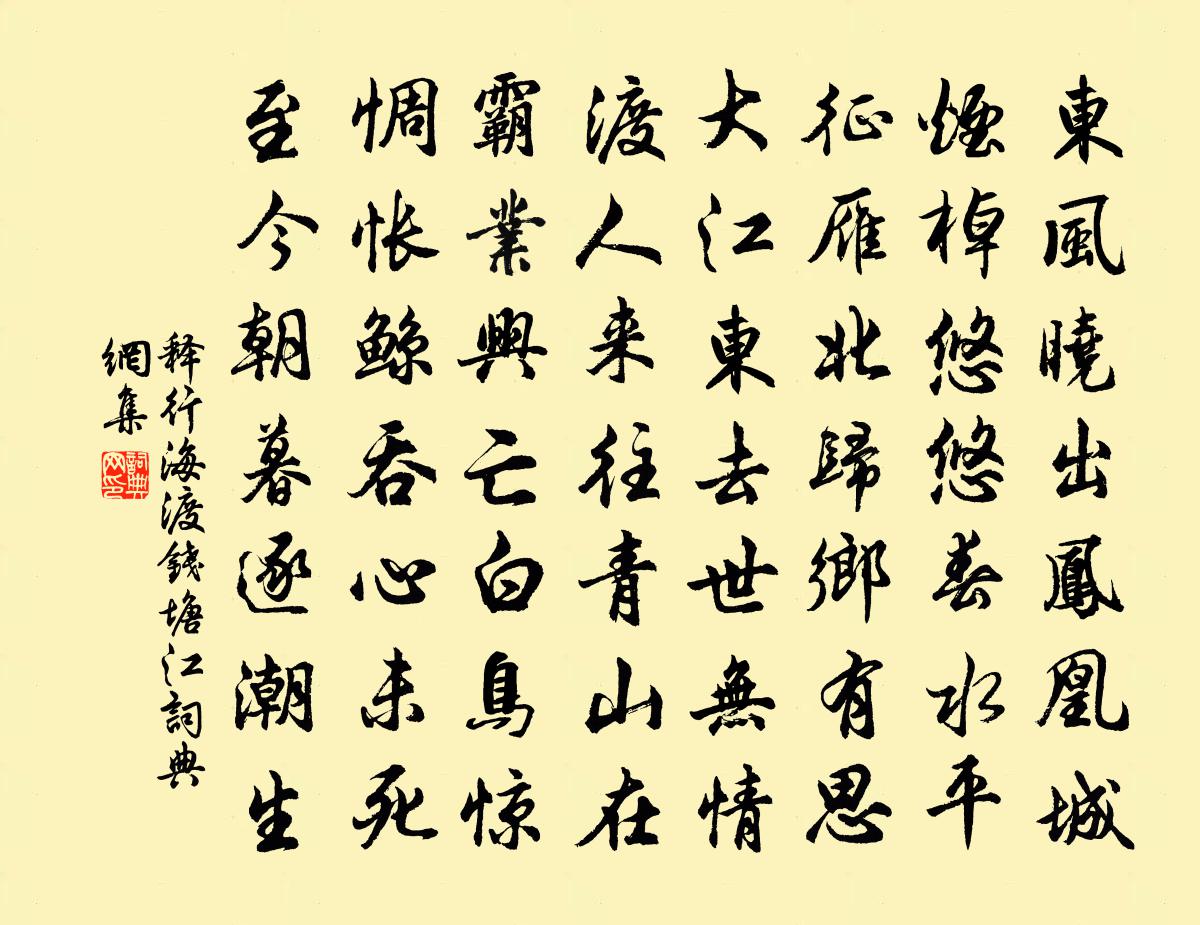 東風曉出鳳凰城
煙棹悠悠春水平
征雁北歸鄉有思
大江東去世無情
渡人来往青山在
霸業興亡白鳥惊
惆怅鲸吞心未死
至今朝暮逐潮生
释行海渡錢塘江詞典
網集
詞典網印